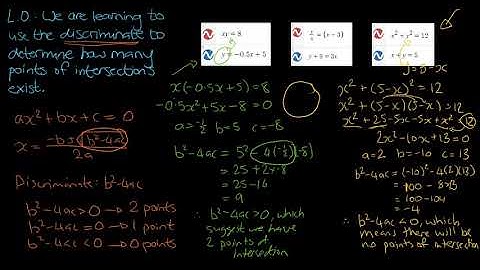 L.O: We are learning to
use the discriminate to
determine how many
points of intersections
exist.
ax² + bx + c = 0
x = -b±√b²-4ac
2a
Discriminate: b²-4ac
b²-4ac > 0 → 2 points
b²-4ac = 0 → 1 point
b²-4ac < 0 → 0 points
xy = 8
y = -0.5x + 5
x(-0.5x+5) = 8
-0.5x²+5x-8 = 0
a = -½ b = 5 c = -8
b²-4ac = 5²-4(-½)(-8)
= 25 + 2x-8
= 25-16
= 9
∴ b²-4ac > 0, which
suggest we have
2 points of
intersection
y + 5 = 3x
x² + y² = 12
x + y = 5
y = 5-x
x² + (5-x)² = 12
x² + (5-x)(5-x) = 12
x² + 25-5x-5x+x² = 12
2x²-10x+13 = 0
a = 2 b = -10 c = 13
b²-4ac = (-10)²-4(2)(13)
= 100 - 8x13
= 100-104
= -4
∴ b²-4ac < 0, which
means there will be
no points of intersection